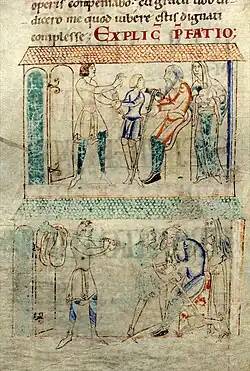 operis compensabo. ea gratia uob in
dicero me quod iubere estis dignati
complesse; EXPLIC PFATIO;